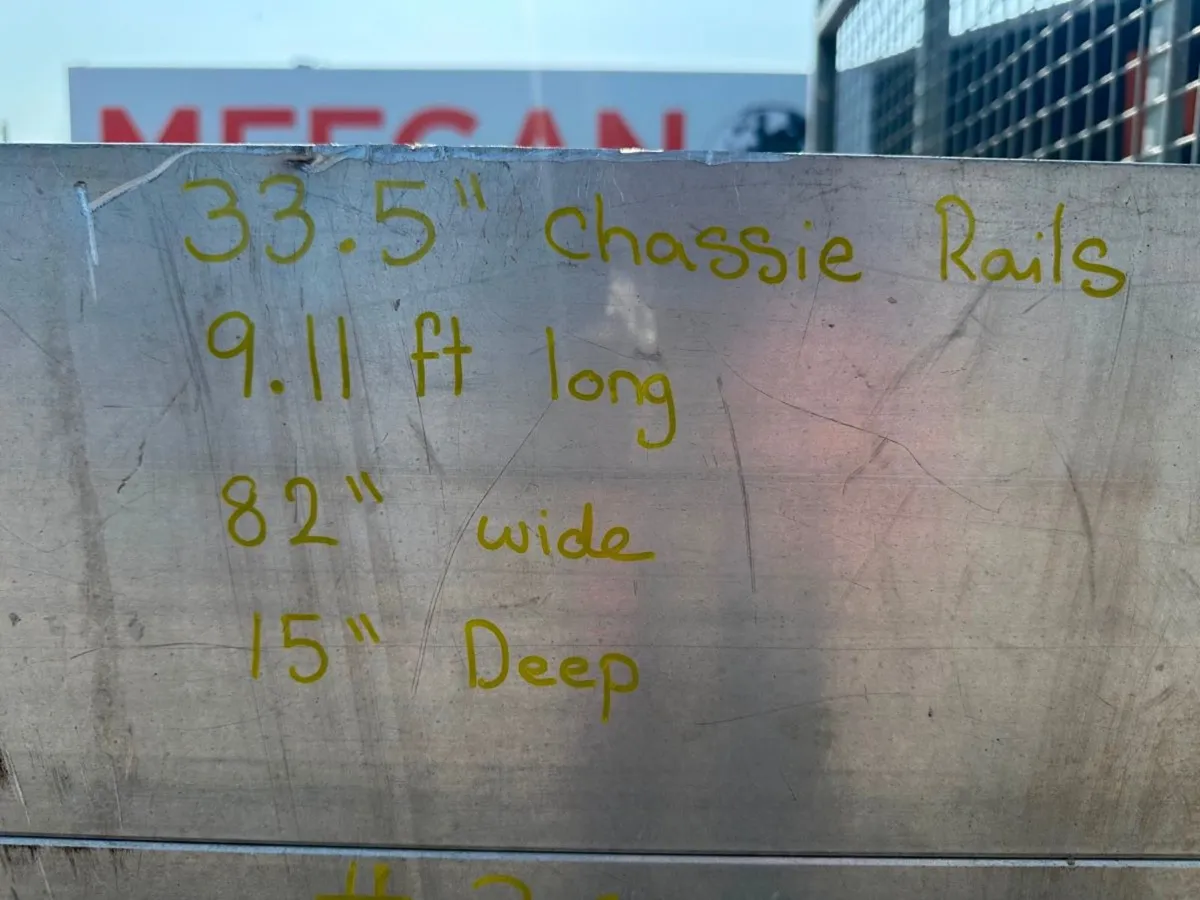 MEEGAN
33.5" chassie Rails
9.11 ft long
82" wide
15" Deep